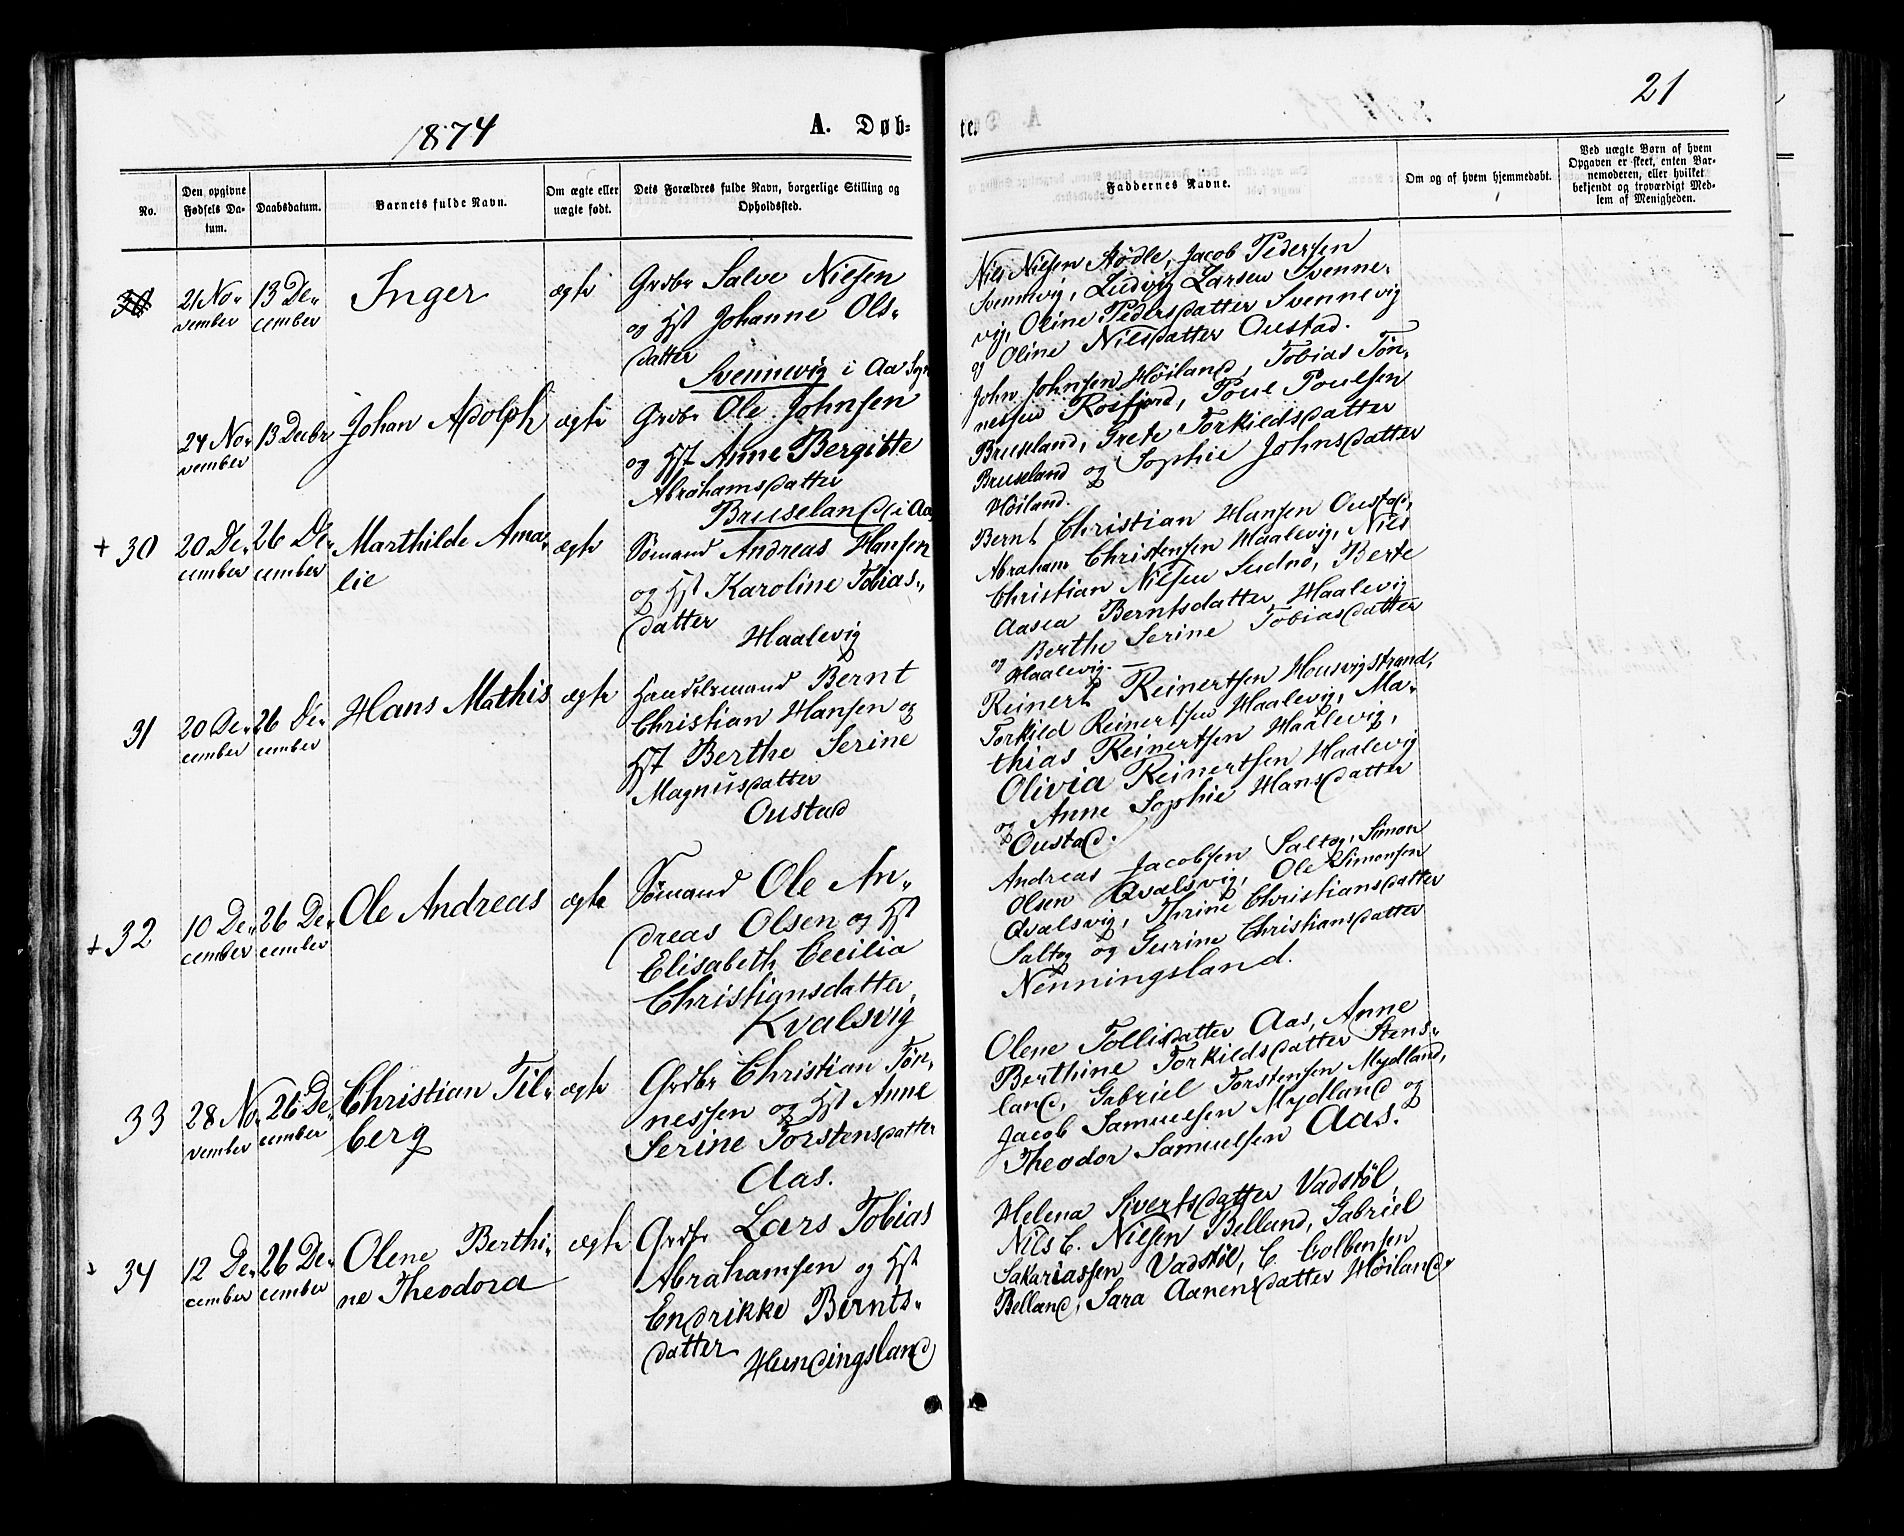 1874
A. Døb-
te.
21
No.
Den opgivne
Fødsels Da-
tum.
Daabsdatum.
Barnets fulde Navn.
Om ægte eller
uægte født.
Dets Forældres fulde Navn, borgerlige Stilling og
Opholdssted.
Faddernes Navne.
Om og af hvem hjemmedøbt.
Ved uægte Børn af hvem
Opgaven er skeet, enten Bar-
nemoderen, eller hvilket
bekjendt og troværdigt Med-
lem af Menigheden.
21 No-
vember
13 De-
cember
Inger
ægte
Grdbr Salve Nielsen
og Hst Johanne Ols-
datter
Svennevig i Aa Sogn
Nils Nielsen Stødle, Jacob Pedersen
Svennevig, Ludvig Larsen Svenne-
vig, Oline Pedersdatter Svennevig
og Oline Nilsdatter Oustad.
24 No-
vember
13 Decbr
Johan Adolph
ægte
Grdbr Ole Johnsen
og Hst Anne Bergitte
Abrahamsdatter
Bruseland i Aa
John Johnsen Høiland, Tobias Tøn-
nessen Rosfjord, Poul Poulsen
Bruseland, Grete Torkildsdatter
Bruseland og Sophie Johnsdatter
Høiland.
+ 30
20 De-
cember
26 De-
cember
Marthilde Ama-
lie
ægte
Sømand Andreas Hansen
og Hst Karoline Tobias-
datter
Haalevig
Bernt Christian Hansen Oustad,
Abraham Christensen Haalevig, Niels
Christian Nielsen Sudnø, Berte
Aasea Berntsdatter Haalevig
og Berthe Serine Tobiasdatter
Haalevig.
31
20 De-
cember
26 De-
cember
Hans Mathis
ægte
Handelsmand Bernt
Christian Hansen og
Hst Berthe Serine
Magnusdatter
Oustad
Reinert Reinertsen Housvigstrand,
Torkild Reinertsen Haalevig, Ma-
thias Reinertsen Haalevig,
Olivia Reinertsen Haalevig
og Anne Sophie Hansdatter
Oustad.
+ 32
10 De-
cember
26 De-
cember
Ole Andreas
ægte
Sømand Ole An-
dreas Olsen og Hst
Elisabeth Cecilia
Christiansdatter,
Kvalsvig
Andreas Jacobsen Saltog, Simon
Olsen Qvalsvig, Ole Simonsen
Qvalsvig, Thrine Christiansdatter
Saltog og Gurine Christiansdatter
Nenningsland.
33
28 No-
vember
26 De-
cember
Christian Til-
berg
ægte
Grdbr Christian Tøn-
nessen og Hst Anne
Serine Torstensdatter
Aas.
Olene Tollisdatter Aas, Anne
Berthine Torkildsdatter Stens-
land, Gabriel Torstensen Mydland,
Jacob Samuelsen Mydland og
Theodor Samuelsen Aas.
34
12 De-
cember
26 De-
cember
Olene Berthi-
ne Theodora
ægte
Grdbr Lars Tobias
Abrahamsen og Hst
Endrikke Bernts-
datter
Hundingsland
Helena Sivertsdatter Vadstøl,
Nils C. Nielsen Belland, Gabriel
Sakariassen Vadstøl, C. Colbensen
Belland, Sara Aanensdatter Høiland.